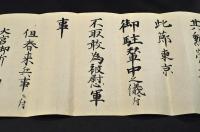 此節東京
御駐輦中之儀ニ付
不取敢為被慰軍
事
但春来兵事ニ付
大宮御所